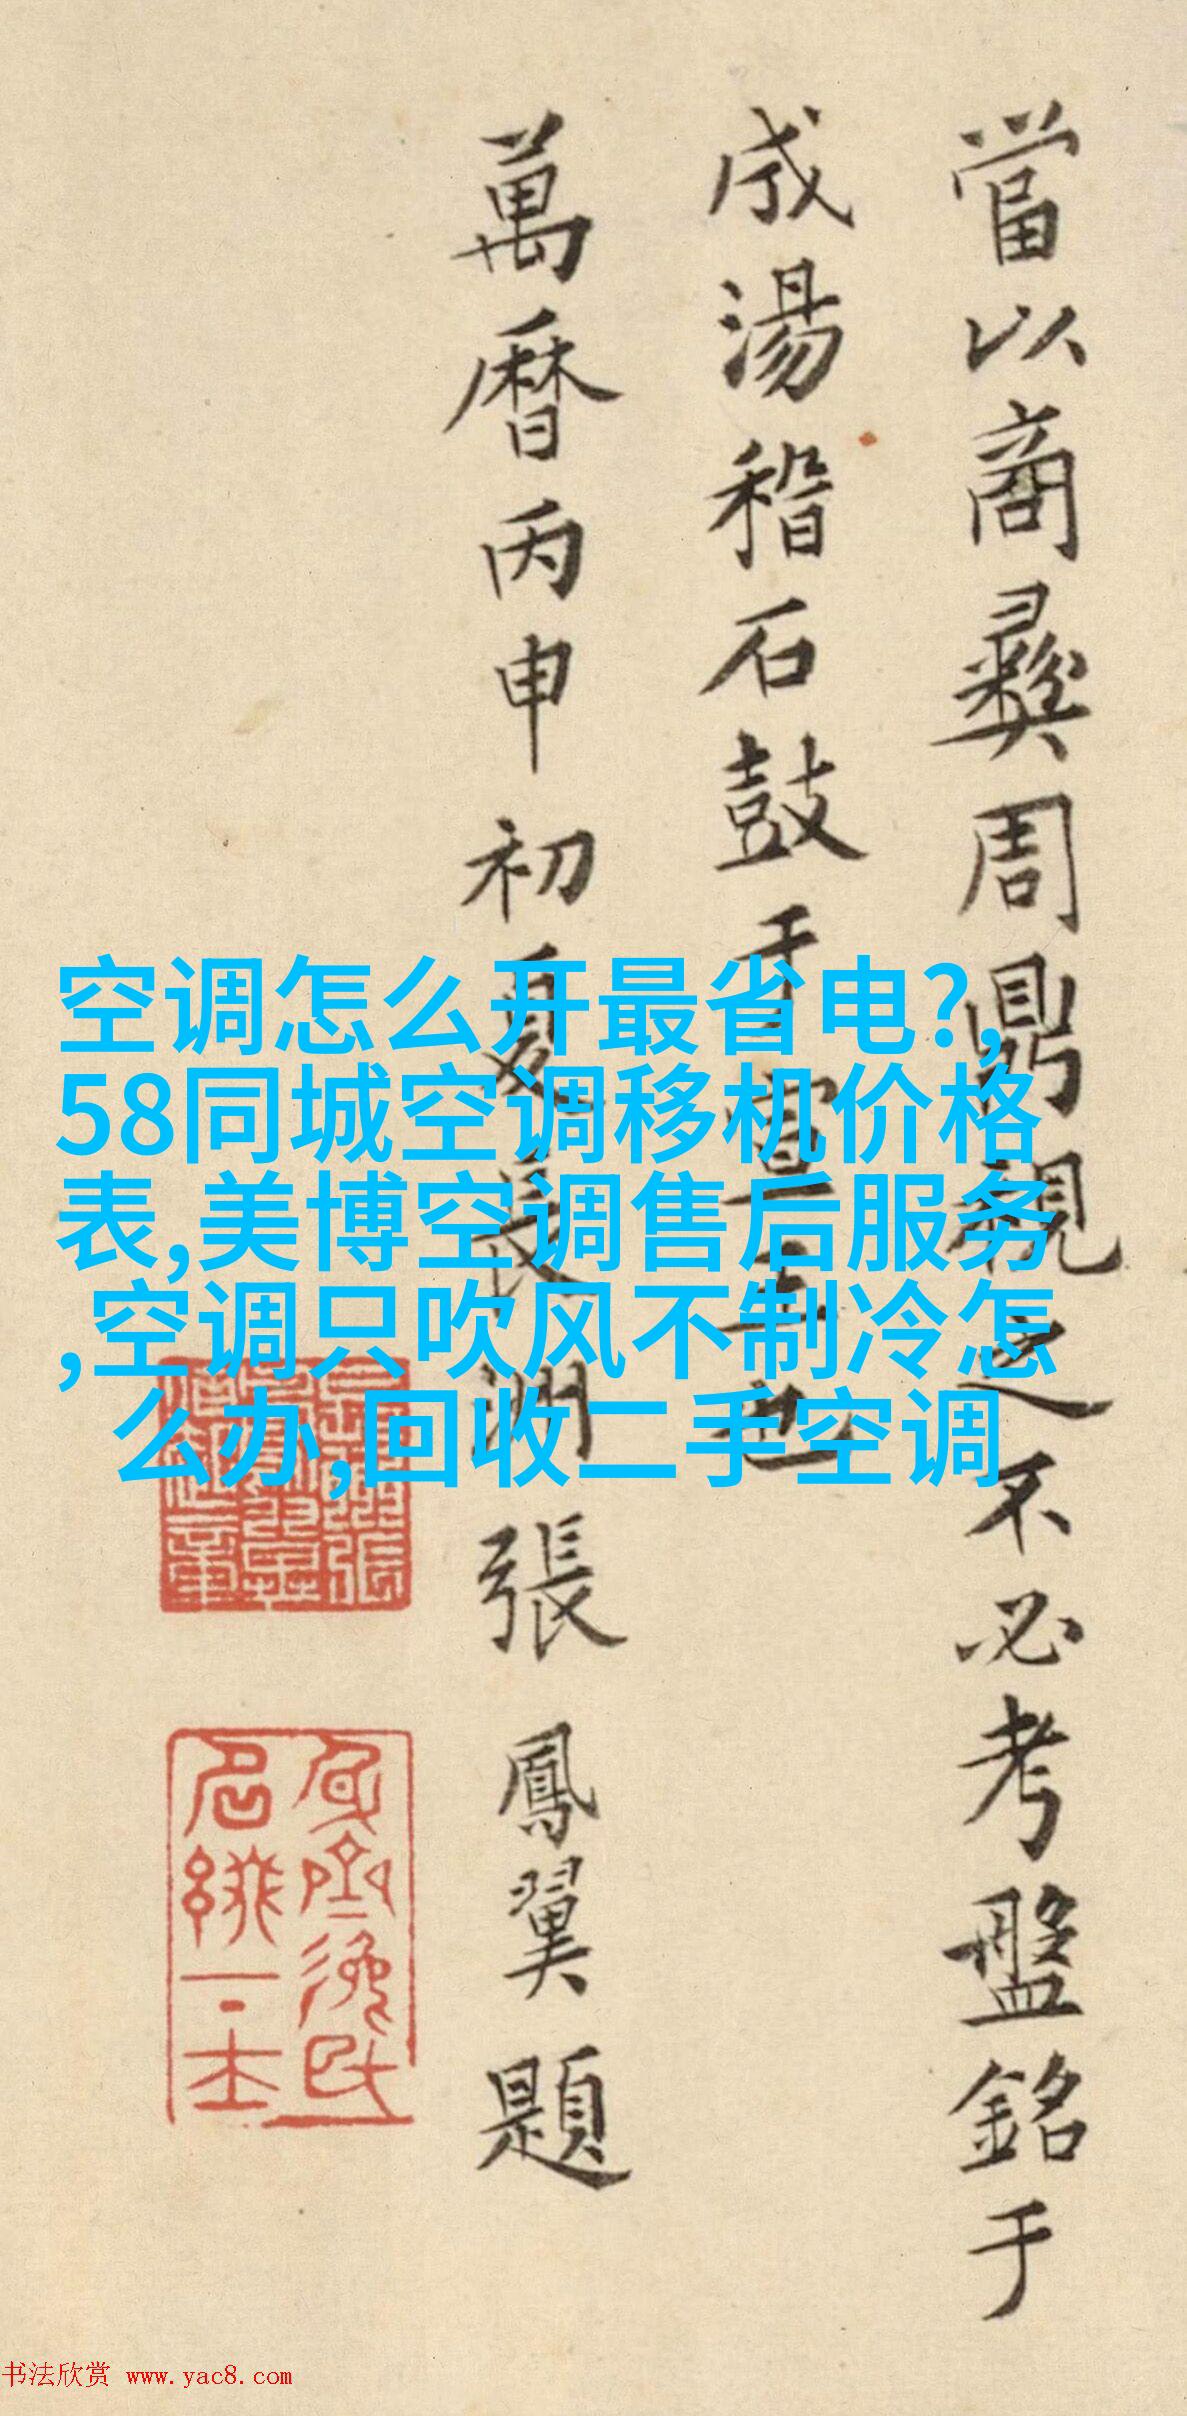 當以商彝周鼎視之不必考盤銘于
成湯稽石鼓于宣王也
萬曆丙申初夏長洲張鳳翼題
空调怎么开最省电?,
58同城空调移机价格
表,美博空调售后服务
,空调只吹风不制冷怎
么办,回收二手空调
书法欣赏 www.yac8.com